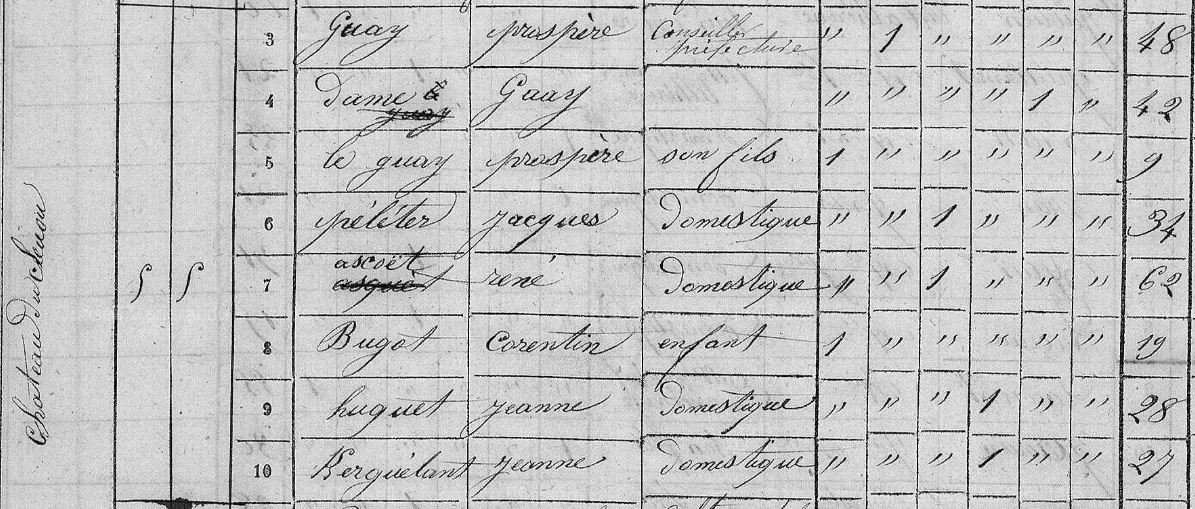 3 Guay prospère Conseiller préfecture " 1 " " " " 48
4 Dame G Guay " " " " 1 " 42
5 le guay prospère son fils 1 " " " " " 9
6 péliter jacques Domestique " " 1 " " " 34
7 ascoët rené Domestique " " 1 " " " 62
8 Bugot Corentin enfant 1 " " " " " 19
9 huguet jeanne Domestique " " " 1 " " 28
10 Kerguélant jeanne Domestique " " " 1 " " 27
Chateau du